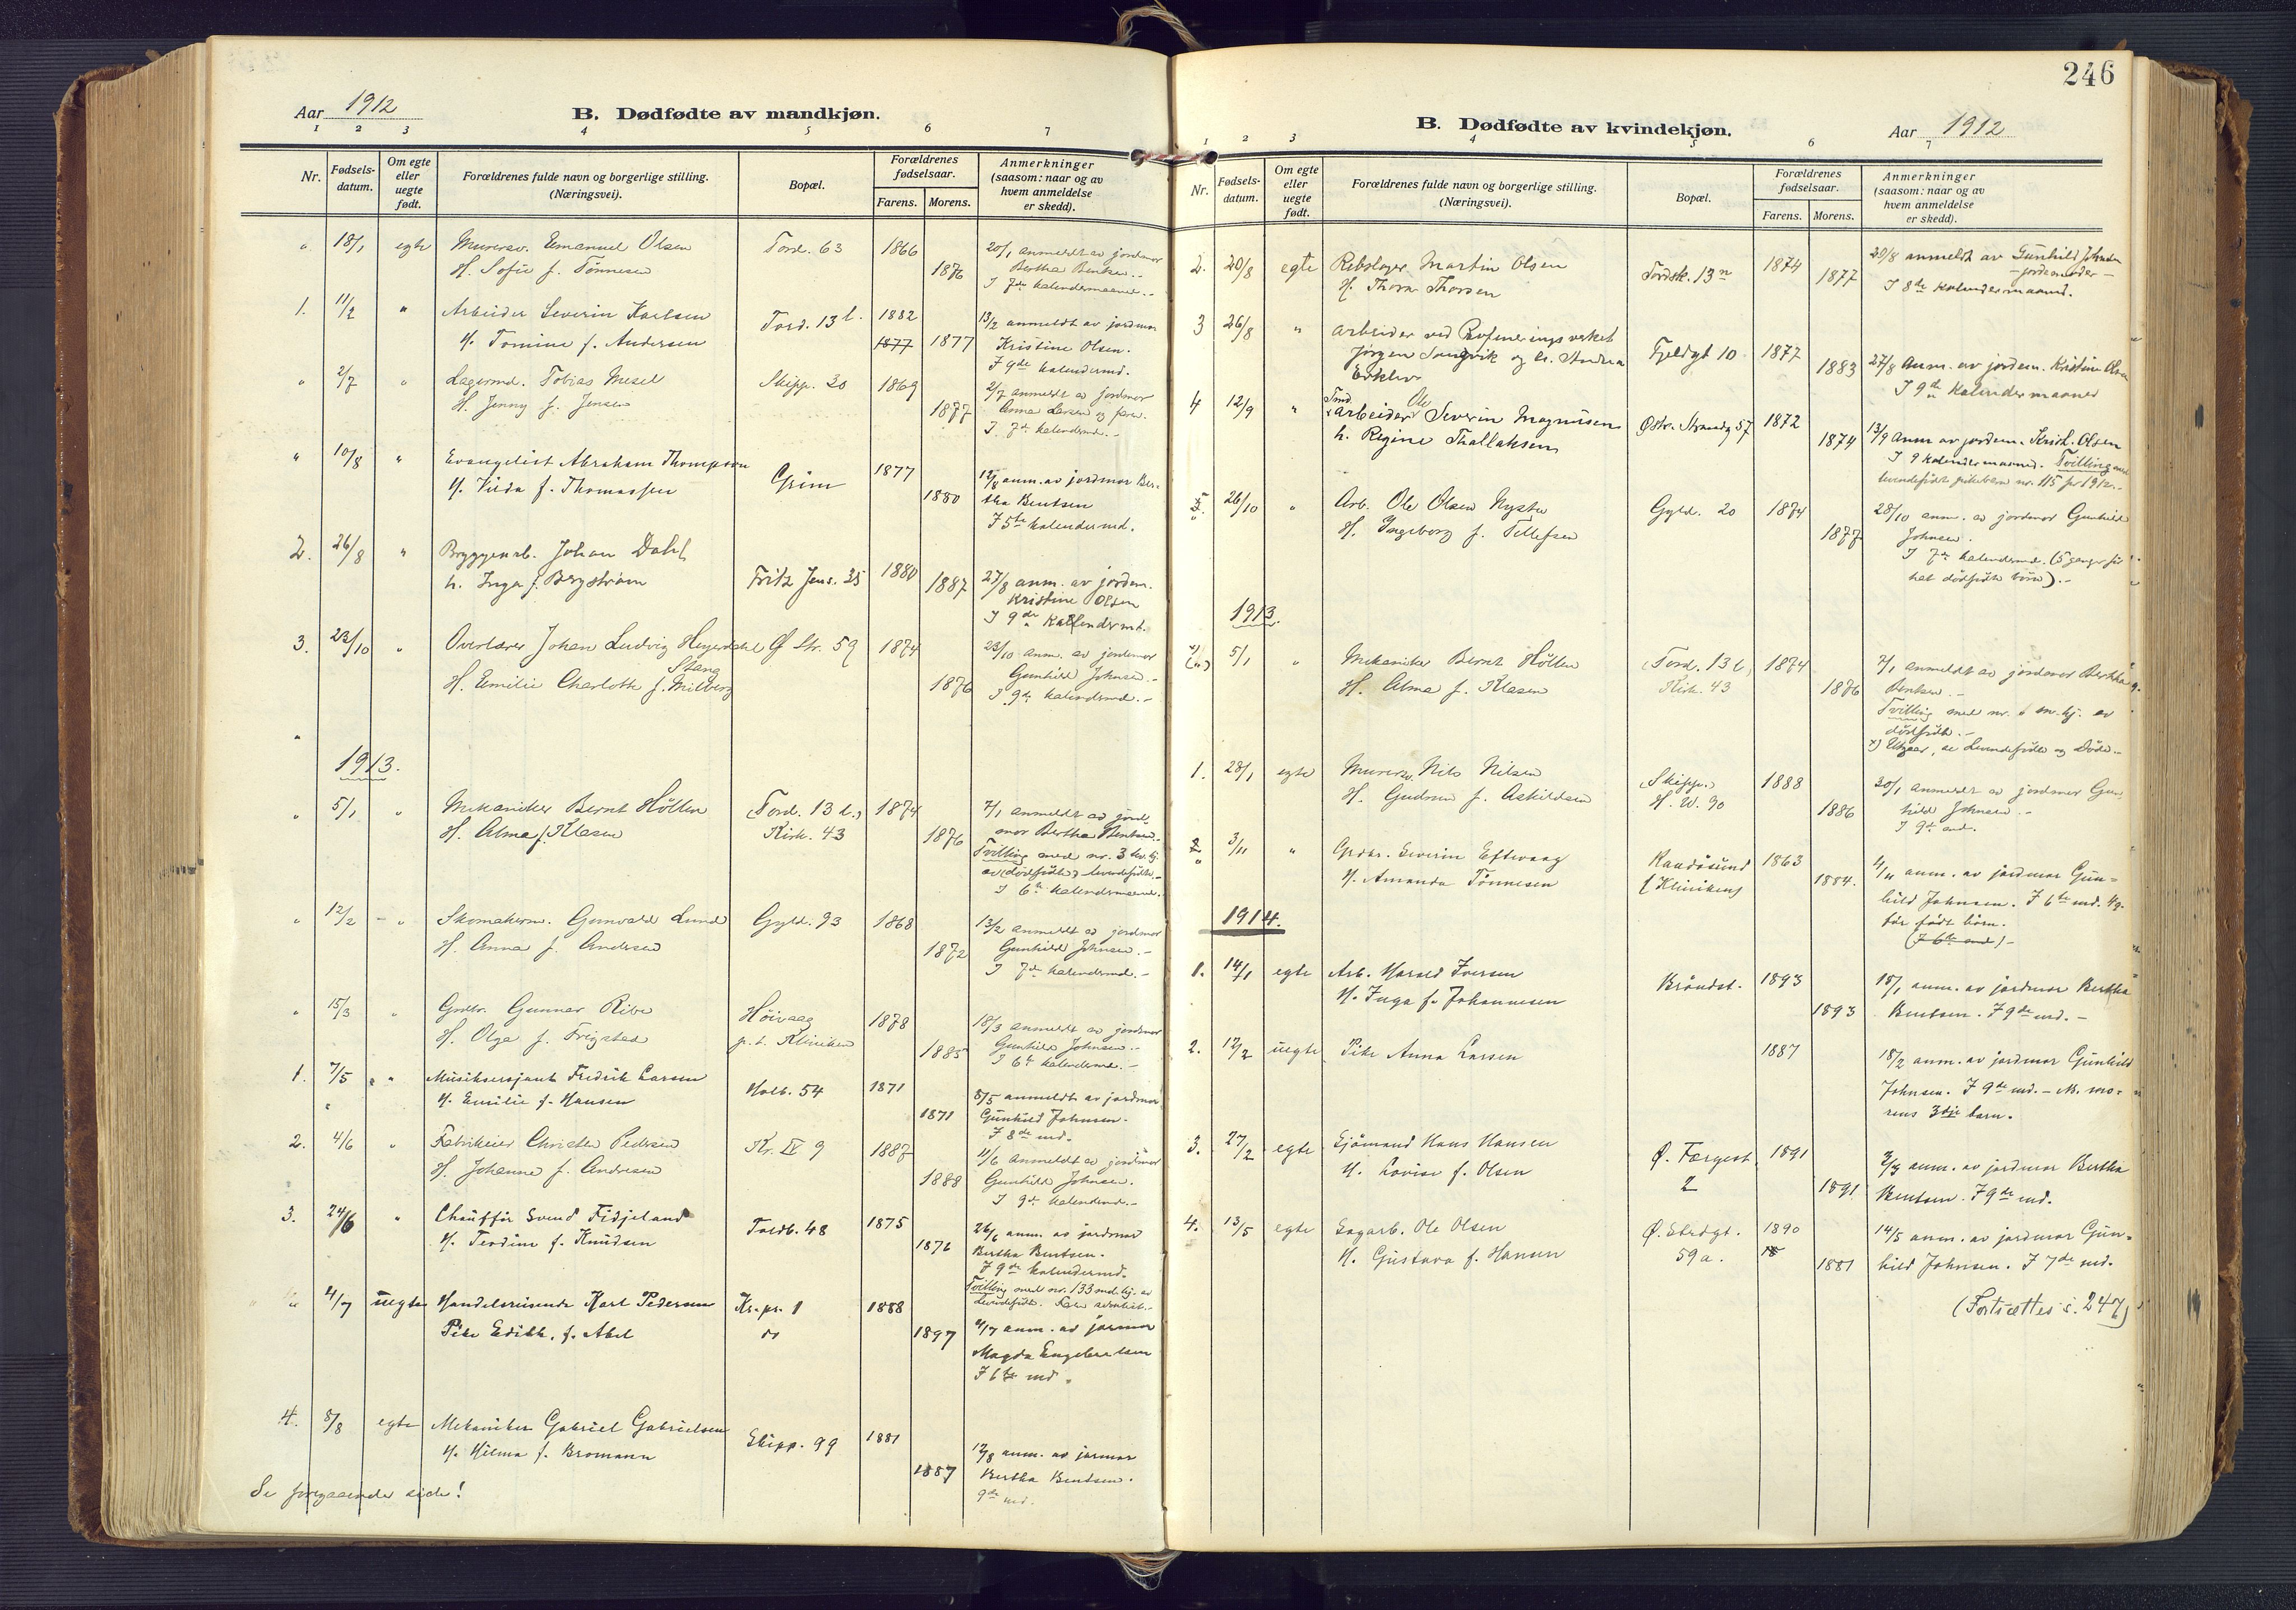 Aar 1912
B. Dødfødte av mandkjøn.
1 2 3 4 5 6 7
Nr. Fødsels-datum. Om egte eller uegte født. Forældrenes fulde navn og borgerlige stilling. (Næringsvei). Bopæl. Forældrenes fødselsaar. Farens. Morens. Anmerkninger (saasom: naar og av hvem anmeldelse er skedd).
" 18/1 egte Murersv. Emanuel Olsen Tord. 63 1866 20/1 anmeldt av jordmor
H. Sofie f. Tönnesen 1876 Bertha Bentsen.-
I 7de kalendermaaned.-
1. 11/2 " Arbeider Severin Karlsen Tord. 13 l. 1882 13/2 anmeldt av jordmor
H. Tomine f. Andersen 1877 1877 Kristine Olsen.
I 9de kalendermd.
" 2/7 " Lagermd. Tobias Mesel Skipp. 30 1869 2/7 anmeldt av jordmor
H. Jenny f. Jensen 1877 Anna Larsen og faren.
I 7de kalendermd.-
" 10/8 " Evangelist Abraham Thompson Grim 1877 12/8 anm. av jordmor Ber-
H. Vilda f. Thomassen 1880 tha Bentsen
I 5te kalendermd.
2. 26/8 " Bryggearb. Johan Dahl Fritz Jens. 35 1880
h. Inga f. Bergström 1887 27/8 anm. av jordem.
Kristine Olsen
I 9de kallendermd.
3. 23/10 " Overlærer Johan Ludvig Heyerdahl Ø Str. 59 1874 23/10 anm. av jordmor
Stang
H. Emilie Charlotte f. Milberg 1876 Gunhild Johnsen.-
I 9de kalendermd.-
1913.
" 5/1 " Mekaniker Bernt Hölten (Tord. 13 l.) 1874 7/1 anmeldt av jord-
H. Alma f. Klasen Kirk. 43 1876 mor Bertha Bentsen.
Tvilling med nr. 3 kv.kj.
av (dödfödte) levendefödte.-
I 6te kalendermaaned.
" 12/2 - " Skomakerm. Gunvald Lund Gyld. 93 1868 13/2 anmeldt av jordmor
H. Anna f. Andersen 1872 Gunhild Johnsen.-
I 7de kalendermd.-
" 15/3 " Grdbr. Gunnar Ribe Höivaag 1878 18/3 anmeldt av jordmor
H. Olga f. Frigstad p.t. Kliniken 1885 Gunhild Johnsen.-
I 6te kalendermd.-
1. 7/5 " " Musiksersjant Fredrik Larsen Holb. 54 1871 8/5 anmeldt av jordmor
H. Emilie f. Hansen 1871 Gunhild Johnsen.
I 8de md.
2. 4/6 " Fabrikeier Christen Pedersen Kr. IV 9 1887 4/6 anmeldt av jordmor
H. Johanne f. Andresen 1888 Gunhild Johnsen.
I 9de kalendermd.-
3. 24/6 " Chaufför Svend Fidjeland Toldb. 48 1875 26/6 anm. av jordmor
H. Terdine f. Knudsen 1876 Bertha Bentsen.
I 9de kalendermd.
Tvilling med nr. 133 md.kj. av
levendefödte.
" 4/7 uegte Handelsreisende Karl Pedersen Kr.pr. 1 1888 4/7 anm. av jormor
Pike Edith. f. Abel do 1897 Magda Engebretsen
I 6te md.
4. 8/8 egte Mekaniker Gabriel Gabrielsen Skipp. 99 1881 12/8 anm. av jormor
H. Hilma f. Bromann 1887 Bertha Bentsen.
9de md.
Se foregaaende side!
246
B. Dødfødte av kvindekjøn.
Aar 1912
1 2 3 4 5 6 7
Nr. Fødsels-datum. Om egte eller uegte født. Forældrenes fulde navn og borgerlige stilling. (Næringsvei). Bopæl. Forældrenes fødselsaar. Farens. Morens. Anmerkninger (saasom: naar og av hvem anmeldelse er skedd).
2. 20/8 egte Rebslager Martin Olsen Tordsk. 13 n 1874 20/8 anmeldt av Gunhild Johnsen
H. Thora Thorsen 1877 - jordemoder -
I 8de kalendermaaned.
3 26/8 " Arbeider ved Rafineringsverket Fjeldgt 10 1877
Jørgen Songvik og h. Andrea 1883 27/8 Anm. av jordem. Kristine Olsen
Eskeliv I 9de kalendermaaned
4 12/9 " Smd. Arbeider Ole Severin Magnusen Østr. Strandg 57 1872
h. Regine Thallaksen 1874 13/9 Anm av jordem. Krist. Olsen
I 9 kalendermaaned. Tvilling med
levendefödt pikebarn nr. 115 for 1912.-
5. 26/10 " Arb. Ole Olsen Nystu Gyld. 20 1874 28/10 anm. av jordmor Gunhild
H. Ingeborg f. Tellefsen 1877 Johnsen.
I 7de kalendermd. (5 ganger för
hat dödfödte börn).-
1913.
5/1 " Mekaniker Bernt Hölten (Tord. 13 l.) 1874 7/1 anmeldt av jordmor Bertha
H. Alma f. Klasen Kirk. 43 1876 Bentsen.-
Tvilling med nr. 1 m.kj. av
dödfödte.-
x) Utgaar, se Levendefödte og Döde.-
1. 28/1 egte Murersv. Nils Nilsen (Skipp.) 1888 30/1 anmeldt av jordmor Gun-
H. Gudrun f. Askildsen H. W. 90 1886 hild Johnsen.-
I 9de md.
2 3/11 " Grdbr. Severin Eftevaag Randösund 1863 4/11 anm. av jordmor Gun-
H. Amanda Tönnesen (Kliniken) 1884. hild Johnsen. I 6te md. 4 g.
før født börn.
(I 6te md) -
1914.
1. 14/1 egte Arb. Harald Iversen Bröndst. 1893 15/1 anm. av jordmor Bertha
H. Inga f. Johannesen 1893 Bentsen. I 9de md. -
2. 12/2 uegte Pike Anna Larsen 1887 18/2 anm. av jordmor Gunhild
Johnsen. I 9de md. - N. mo-
rens 3dje barn.
3. 27/2 egte Sjömand Hans Hansen Ø. Færgest. 1891 2/3 anm. av jordmor Bertha
H. Lovise f. Olsen 2 1891 Bentsen. I 9de md.
4. 13/5 egte Sagarb. Ole Olsen Ø. Strdgt. 1890 14/5 anm. av jordmor Gun-
H. Gustava f. Hansen 59 a. 18 1881 hild Johnsen. I 7de md.
(Fortsættes s. 247)